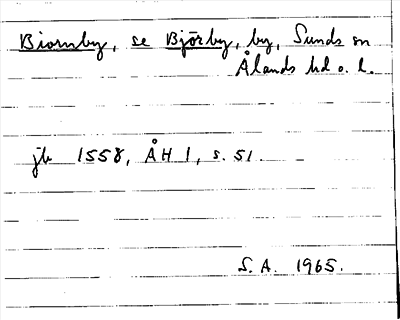 Biornby, se Björby, by, Sunds sn
Ålands hd o. l.
jb 1558, ÅH 1, s. 51
S. A. 1965.